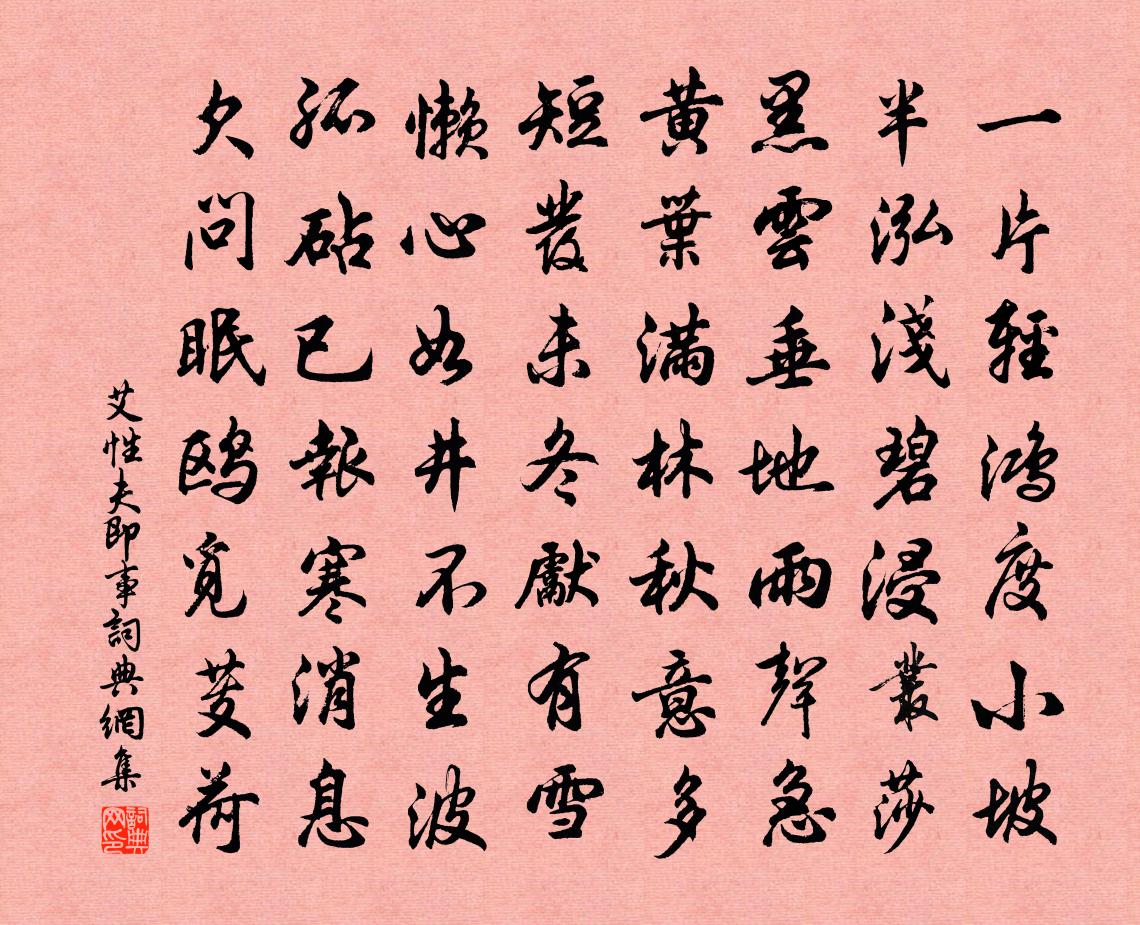 一片輕鴻度小坡
半泓淺碧浸叢莎
黑雲垂地雨聲急
黃葉滿林秋意多
短發未冬獻有雪
懶心如井不生波
孤砧已報寒消息
欠問眠鸥覓芰荷
艾性夫即事詞典網集
詞典
网印